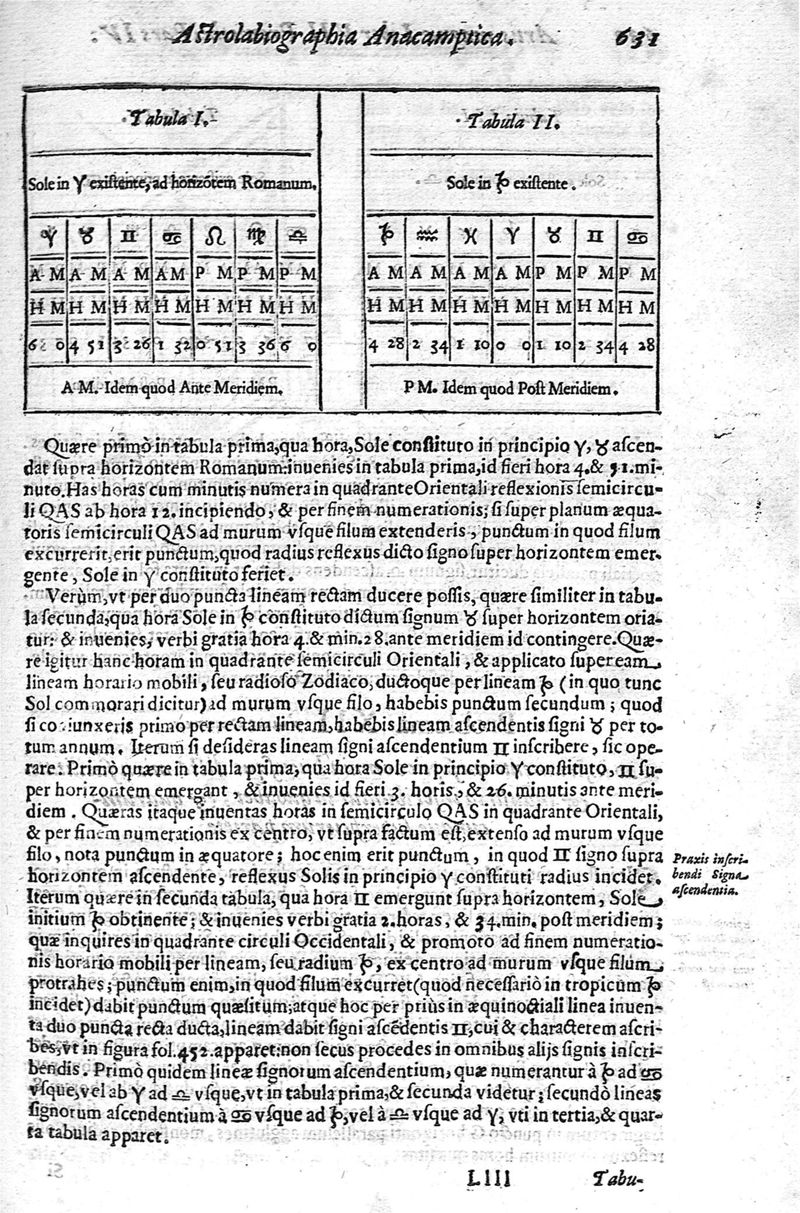 Astrolabiographia Anacamptica. 631
Tabula I.
Sole in ♈ existente, ad horizõtem Romanum.
♈ ♉ ♊ ♋ ♌ ♍ ♎
A M A M A M A M P M P M P M
H M H M H M H M H M H M H M
6 0 4 51 3 26 1 32 0 51 3 36 6 0
A M. Idem quod Ante Meridiem.
Tabula II.
Sole in ♑ existente.
♑ ♒ ♓ ♈ ♉ ♊ ♋
A M A M A M A M P M P M P M
H M H M H M H M H M H M H M
4 28 2 34 1 10 0 0 1 10 2 34 4 28
P M. Idem quod Post Meridiem.
Quære primò in tabula prima, qua hora, Sole constituto in principio ♈, ♉ ascen-
dat supra horizontem Romanum: inuenies in tabula prima, id fieri hora 4. & 51. mi-
nuto. Has horas cum minutis numera in quadrante Orientali reflexionis semicircu-
li QAS ab hora 12. incipiendo, & per finem numerationis; si super planum æqua-
toris semicirculi QAS ad murum vsque filum extenderis, punctum in quod filum
excurrerit, erit punctum, quod radius reflexus dicto signo super horizontem emer-
gente, Sole in ♈ constituto feriet.
Verùm, vt per duo puncta lineam rectam ducere possis, quære similiter in tabu-
la secunda, qua hora Sole in ♑ constituto dictum signum ♉ super horizontem oria-
tur: & inuenies, verbi gratia hora 4. & min. 28. ante meridiem id contingere. Quæ-
re igitur hanc horam in quadrante semicirculi Orientali, & applicato super eam
lineam horario mobili, seu radioso Zodiaco, ductoque per lineam ♑ (in quo tunc
Sol commorari dicitur) ad murum vsque filo, habebis punctum secundum; quod
si coniunxeris primo per rectam lineam, habebis lineam ascendentis signi ♉ per to-
tum annum. Iterum si desideras lineam signi ascendentium ♊ inscribere, sic ope-
rare: Primò quære in tabula prima, qua hora Sole in principio ♈ constituto, ♊ su-
per horizontem emergant, & inuenies id fieri 3. horis, & 26. minutis ante meri-
diem. Quæras itaque inuentas horas in semicirculo QAS in quadrante Orientali,
& per finem numerationis ex centro, vt supra factum est, extenso ad murum vsque
filo, nota punctum in æquatore; hoc enim erit punctum, in quod ♊ signo supra
horizontem ascendente, reflexus Solis in principio ♈ constituti radius incidet.
Iterum quære in secunda tabula, qua hora ♊ emergunt supra horizontem, Sole
initium ♑ obtinente; & inuenies verbi gratia 2. horas, & 34. min. post meridiem;
quæ inquires in quadrante circuli Occidentali, & promoto ad finem numeratio-
nis horario mobili per lineam, seu radium ♑, ex centro ad murum vsque filum
protrahes; punctum enim, in quod filum excurret (quod necessariò in tropicum ♑
incidet) dabit punctum quæsitum; atque hoc per priùs in æquinoctiali linea inuen-
ta duo puncta recta ducta, lineam dabit signi ascēdentis ♊, cui & characterem ascri-
bes, vt in figura fol. 452. apparet: non secus procedes in omnibus alijs signis inscri-
bendis. Primò quidem lineæ signorum ascendentium, quæ numerantur à ♑ ad ♋
vsque, vel ab ♈ ad ♎ vsque, vt in tabula prima, & secunda videtur; secundò lineas
signorum ascendentium à ♋ vsque ad ♑, vel à ♎ vsque ad ♈, vti in tertia, & quar-
ta tabula apparet.
Praxis inscri-
bendi Signa
ascendentia.
Llll Tabu-